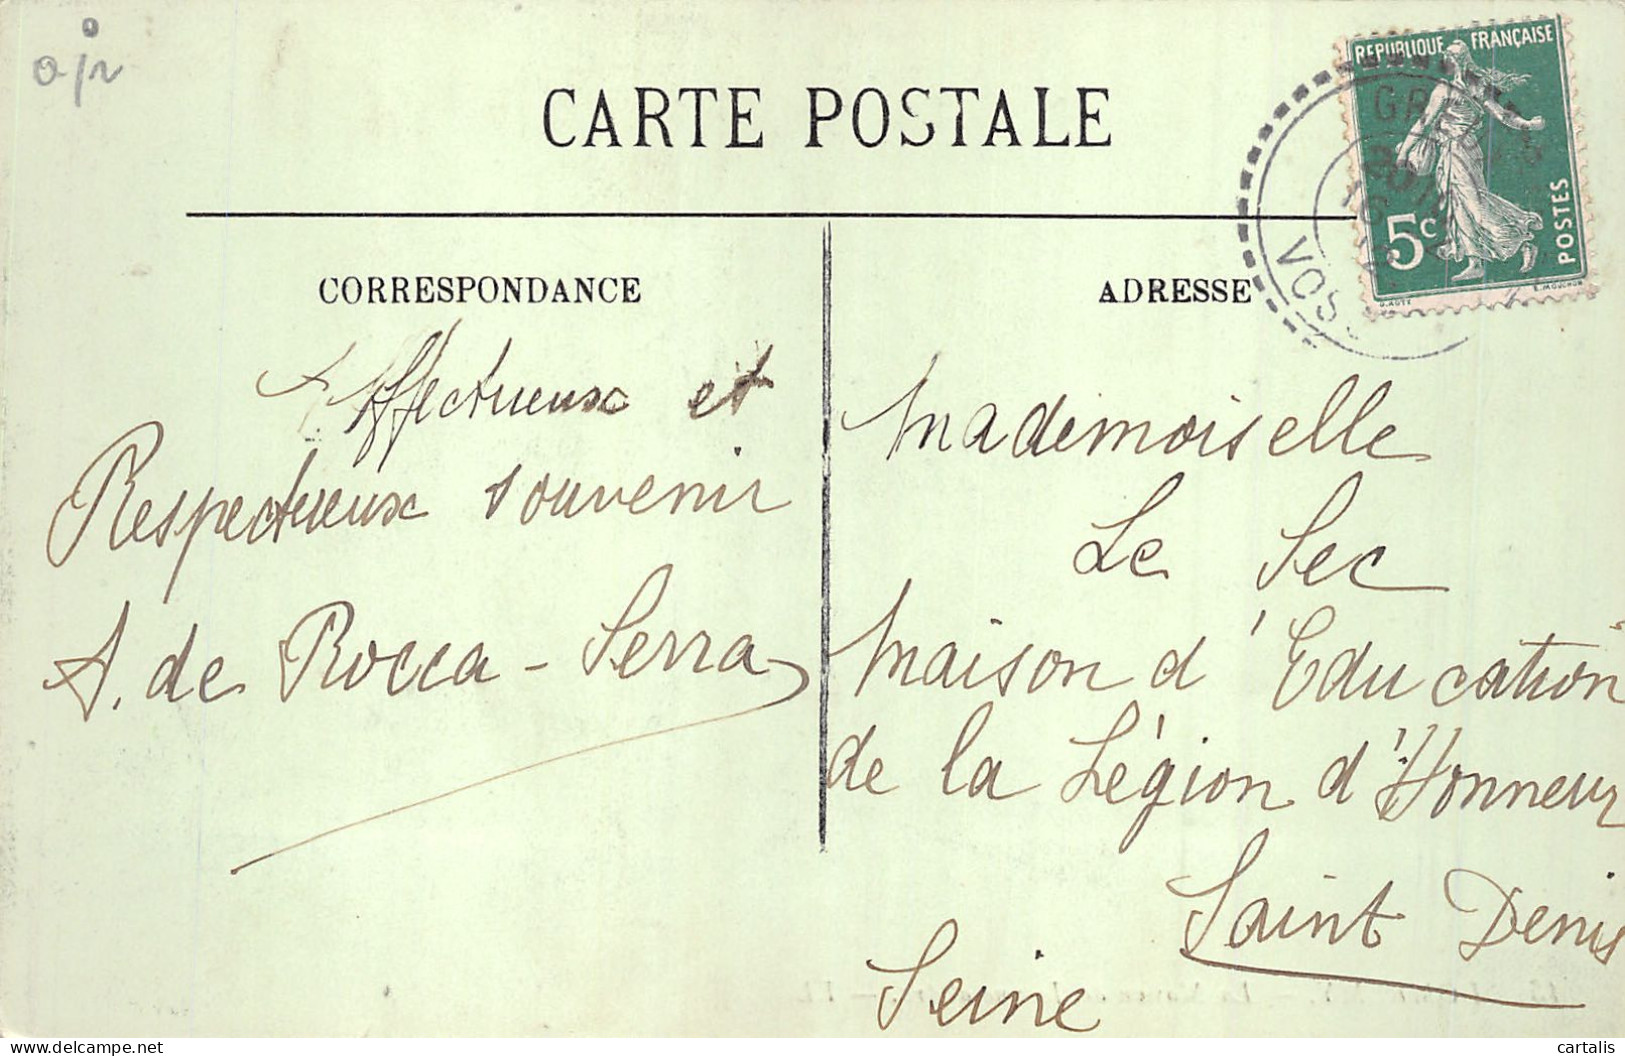 CARTE POSTALE
REPUBLIQUE FRANÇAISE
5c
POSTES
VOS
CORRESPONDANCE
Affectueux et
Respectueux souvenir
A. de Rocca-Serra
ADRESSE
Mademoiselle
Le Sec
Maison d'Education
de la Légion d'Honneur
Saint Denis
Seine
cartalis